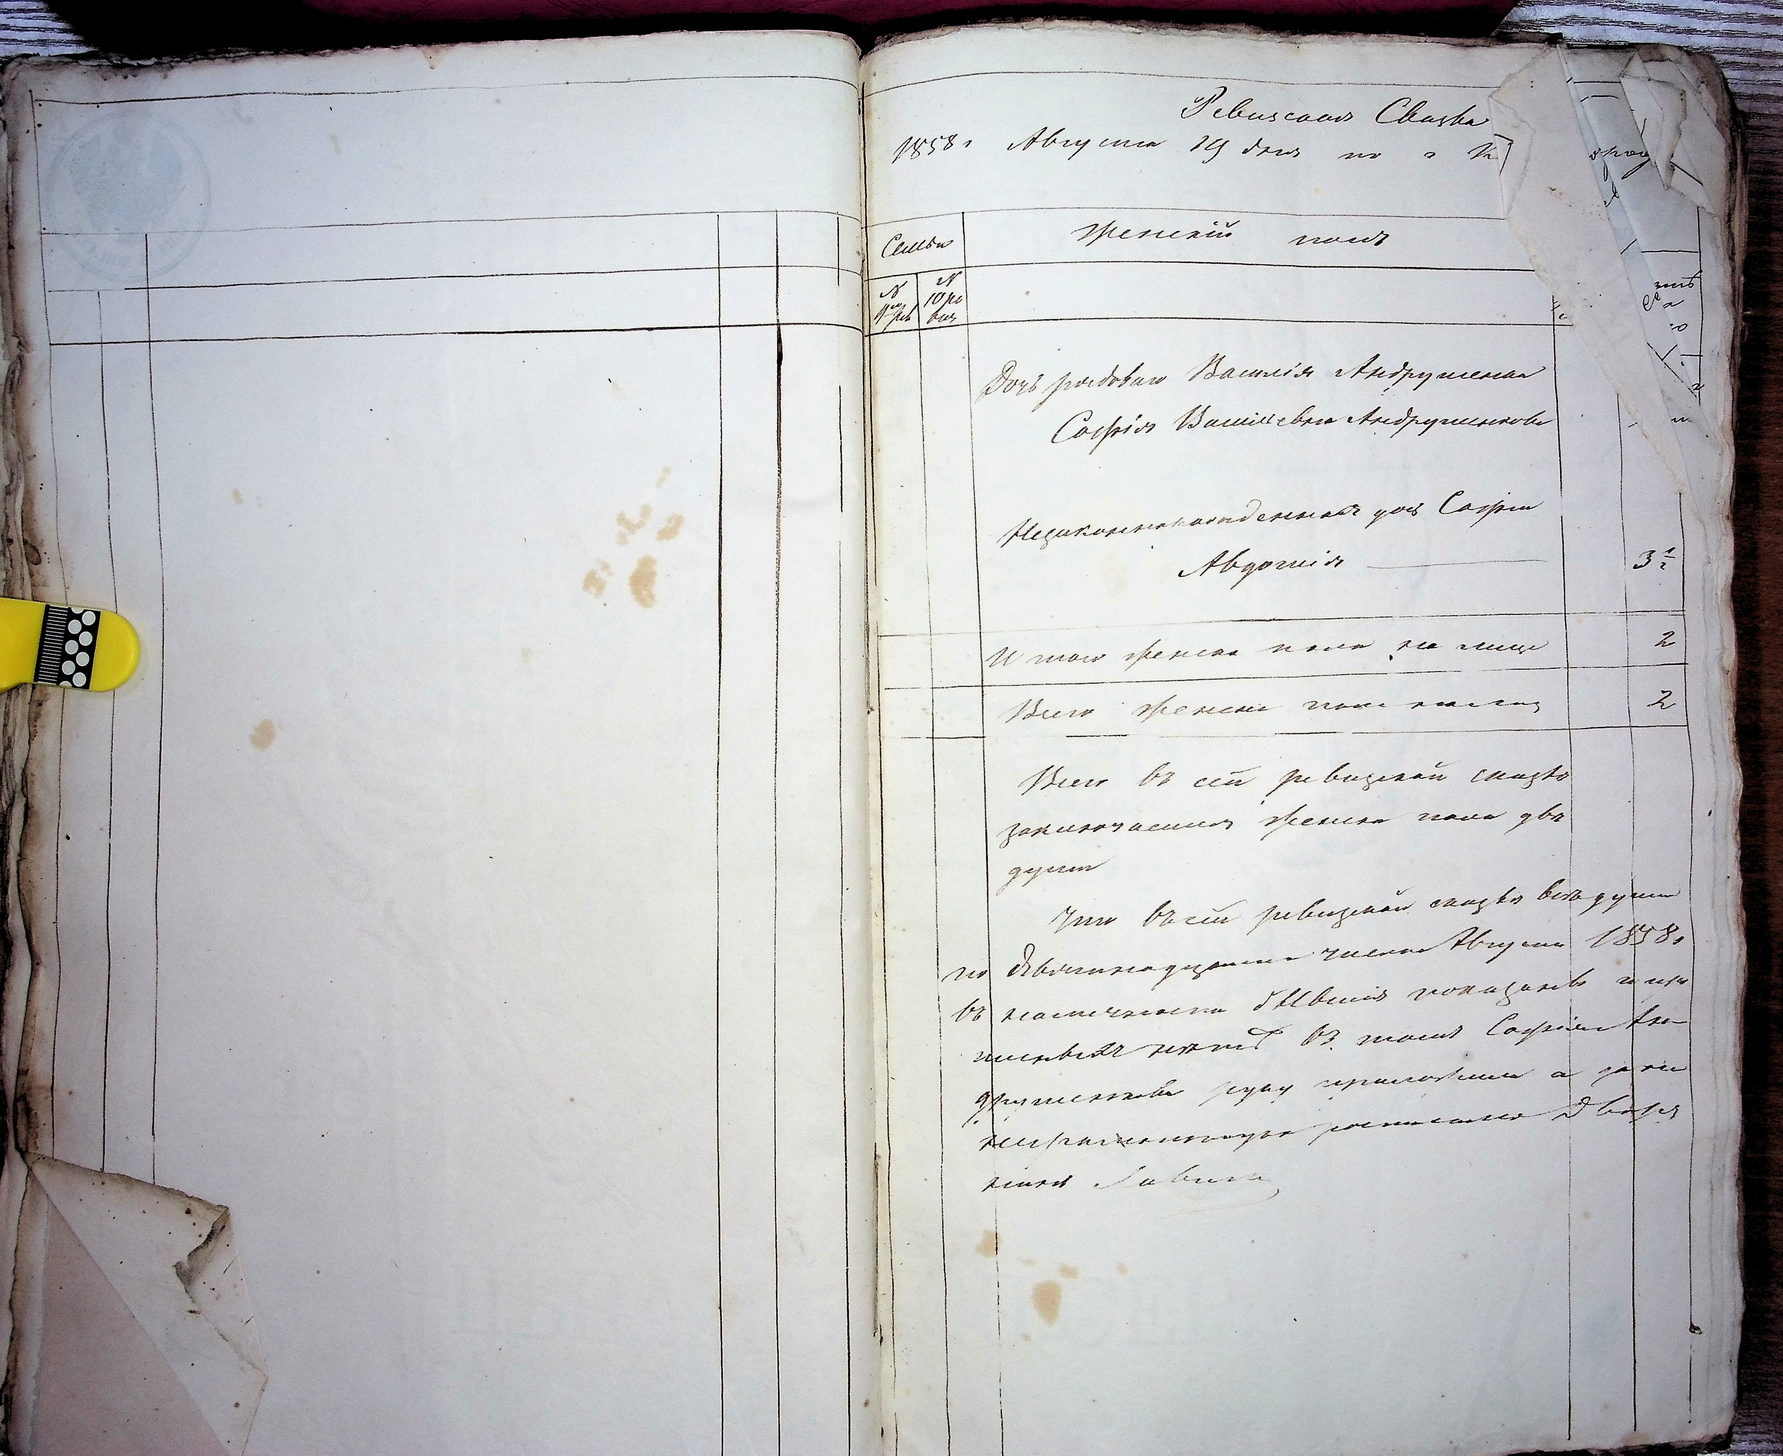 Ревизская Сказка
1858 г Августа 19 дня по г
Семьи
женскій полъ
N 9 рев
N 10 ре виз
Дочь рядоваго Василія Андрушенка
Софія Васильевна Андрушенкова
Незаконнорожденная дочь Софіи
Авдотія
3 1/2
Итого женска пола на лице 2
Всего женска пола на лице 2
Всего въ сей ревизской сказкѣ
заключается женска пола двѣ
души
Что въ сей ревизской сказкѣ всѣ души
по девятнадцатое число Августа 1858 г
въ наличности бывшія показаны и про
писныхъ нѣтъ въ томъ Софія Ан
друшенкова руку приложила а за не
неграмотную росписался Дворя
нинъ